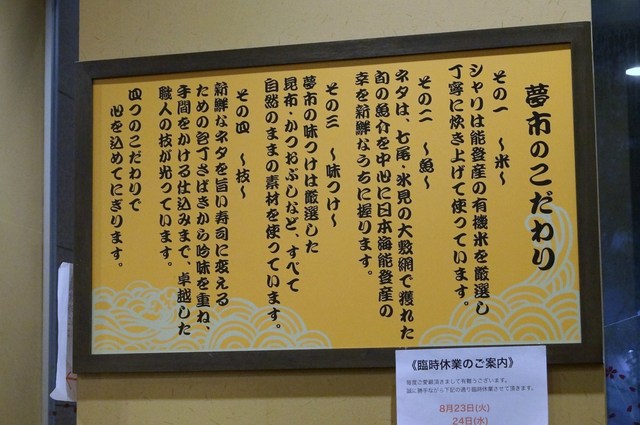 夢市のこだわり
その一　〜米〜
シャリは能登産の有機米を厳選し
丁寧に炊き上げて使っています。
その二　〜魚〜
ネタは、七尾・氷見の大敷網で獲れた
旬の魚介を中心に日本海能登産の
幸を新鮮なうちに握ります。
その三　〜味つけ〜
夢市の味つけは厳選した
昆布・かつおぶしなど、すべて
自然のままの素材を使っています。
その四　〜技〜
新鮮なネタを旨い寿司に変える
ための包丁さばきから吟味を重ね、
手間をかける仕込みまで、卓越した
職人の技が光っています。
四つのこだわりで
心を込めてにぎります。
《臨時休業のご案内》
毎度ご愛顧頂きまして有難うございます。
誠に勝手ながら下記の通り臨時休業させて頂きます。
8月23日(火)
24日(水)